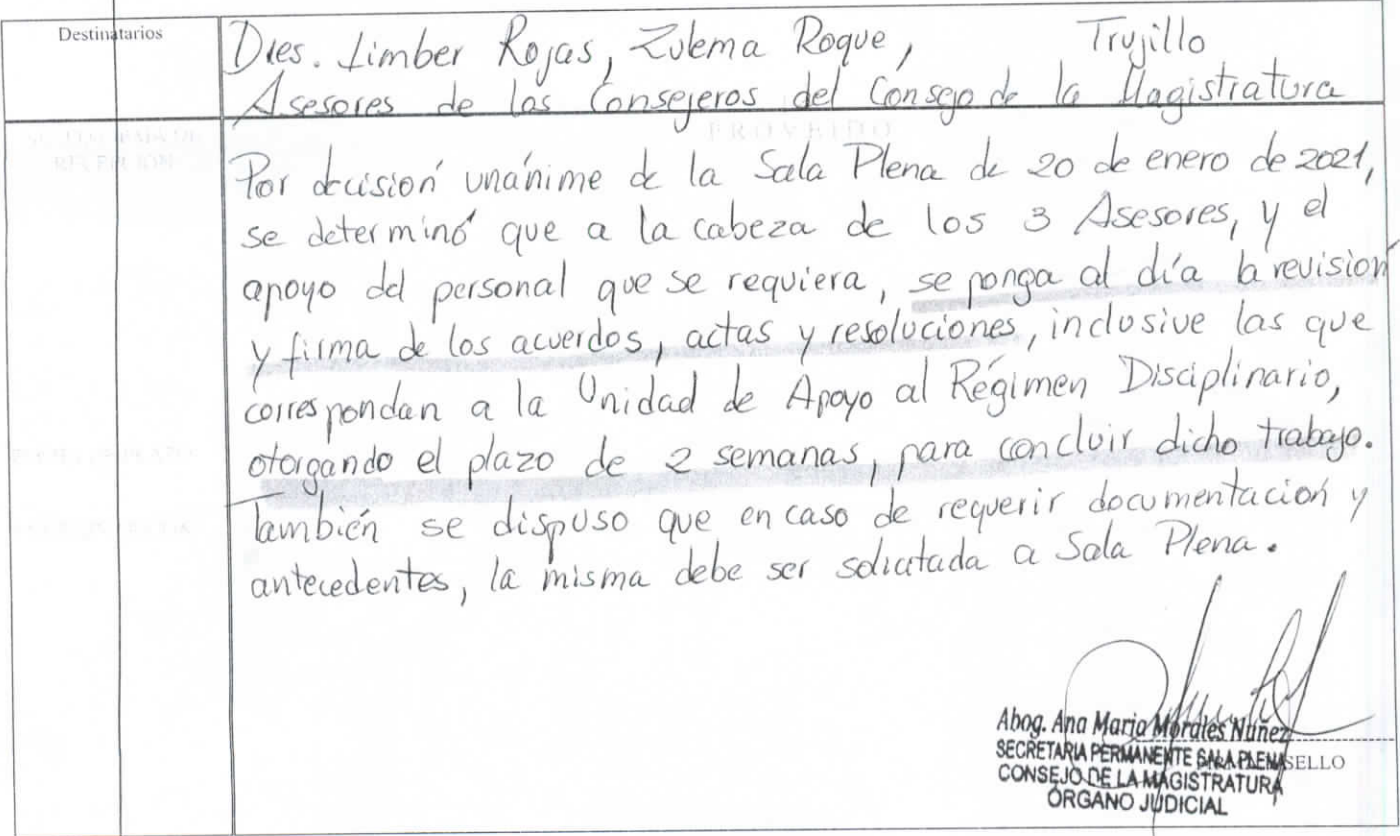 Destinatarios
Dres. Limber Rojas, Zulema Roque, Trujillo
Asesores de los Consejeros del Consejo de la Magistratura
PROVEIDO
RECEPCION
Por decisión unánime de la Sala Plena de 20 de enero de 2021,
se determinó que a la cabeza de los 3 Asesores, y el
apoyo del personal que se requiera, se ponga al día la revisión
y firma de los acuerdos, actas y resoluciones, inclusive las que
correspondan a la Unidad de Apoyo al Régimen Disciplinario,
otorgando el plazo de 2 semanas, para concluir dicho trabajo.
También se dispuso que en caso de requerir documentación y
antecedentes, la misma debe ser solicitada a Sala Plena.
Abog. Ana Maria Morales Nuñez
SECRETARIA PERMANENTE SALA PLENA SELLO
CONSEJO DE LA MAGISTRATURA
ÓRGANO JUDICIAL